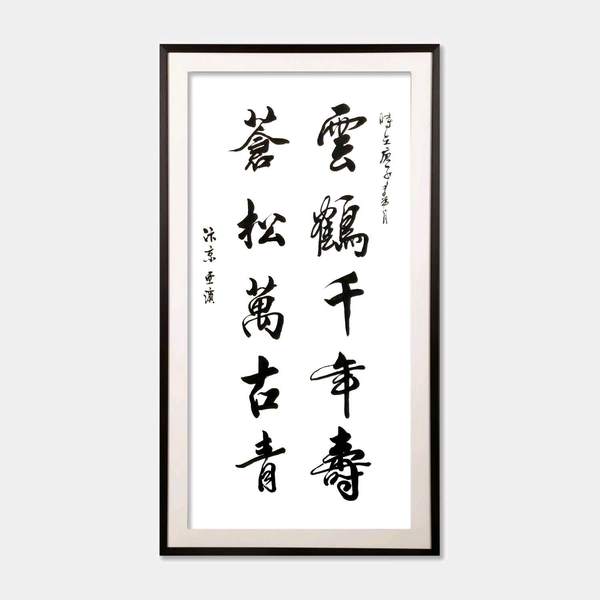 時在庚子年春月
雲鶴千年壽
蒼松萬古青
汴京亜濱